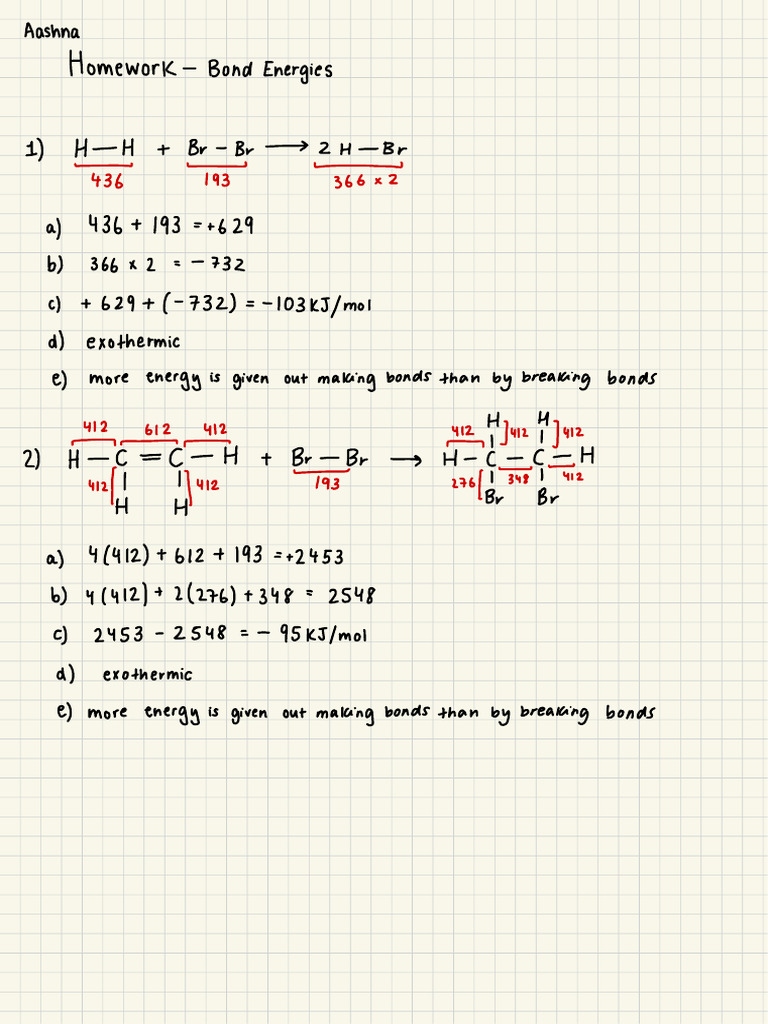 Aashna
Homework — Bond Energies
1) H—H + Br – Br ⟶ 2 H — Br
436 193 366 × 2
a) 436 + 193 = +629
b) 366 × 2 = – 732
c) + 629 + (– 732) = – 103 KJ/mol
d) exothermic
e) more energy is given out making bonds than by breaking bonds
412 612 412 H H
412 412 412
2) H — C = C — H + Br — Br ⟶ H – C – C – H
412 412 193 276 348 412
H H Br Br
a) 4(412) + 612 + 193 = +2453
b) 4(412) + 2(276) + 348 = 2548
c) 2453 – 2548 = – 95 KJ/mol
d) exothermic
e) more energy is given out making bonds than by breaking bonds